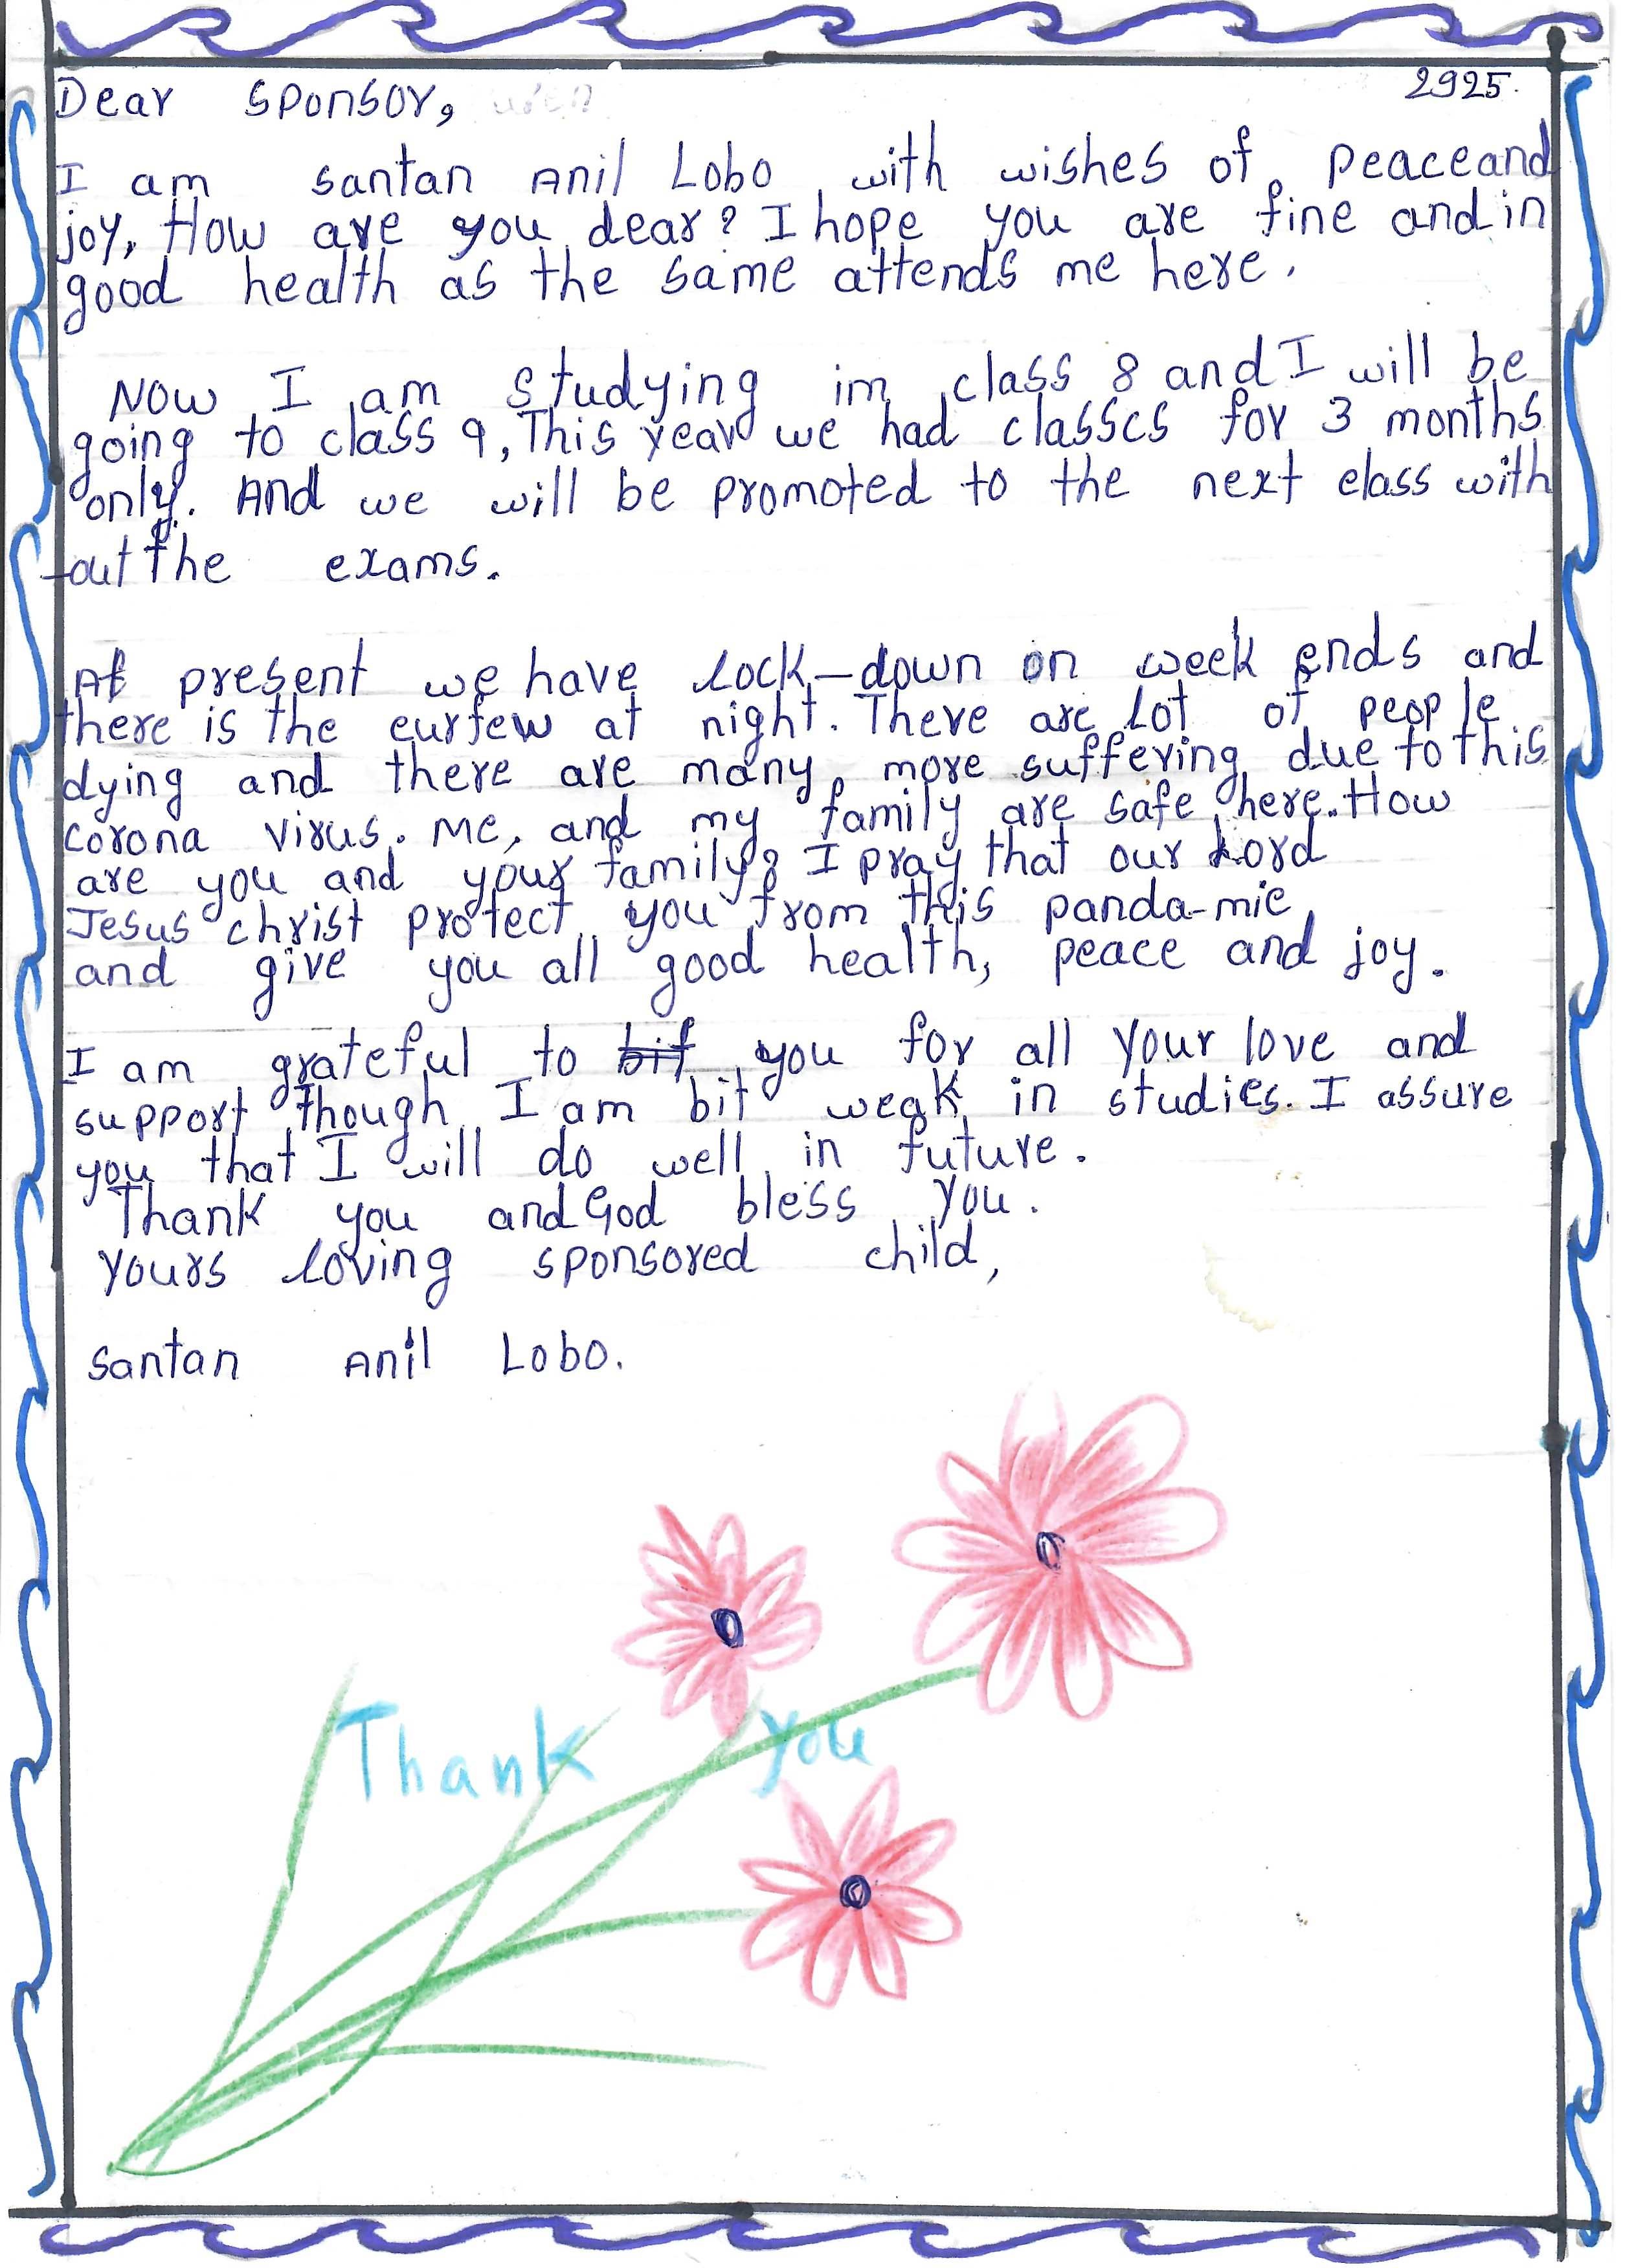 2925.
Dear sponsor,
I am santan Anil Lobo, with wishes of peaceand
joy. How are you dear? I hope you are fine and in
good health as the same attends me here.
Now I am studying im class 8 and I will be
going to class 9, This year we had classcs for 3 months
only. And we will be promoted to the next class with
-out the exams.
At present we have lock-down on week ends and
there is the curfew at night. There are lot of people
dying and there are many more suffering due to this
corona virus. Me, and my family are safe here. How
are you and your family? I pray that our Lord
Jesus christ protect you from this panda-mic
and give you all good health, peace and joy.
I am grateful to bit you for all your love and
support though I am bit weak in studies. I assure
you that I will do well in future.
Thank you and God bless you.
Yours loving sponsored child,
Santan Anil Lobo.
Thank you